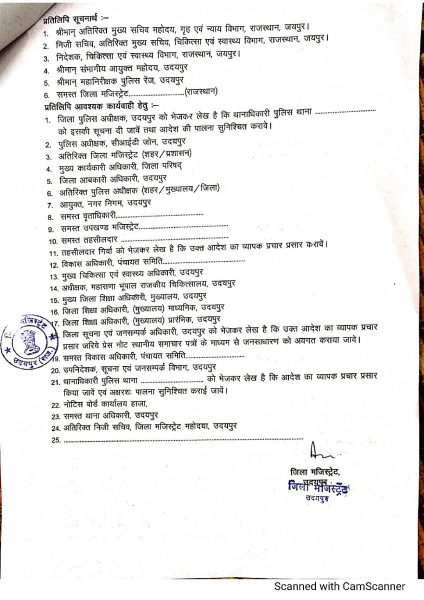 प्रतिलिपि सूचनार्थ :–
1. श्रीमान् अतिरिक्त मुख्य सचिव महोदय, गृह एवं न्याय विभाग, राजस्थान, जयपुर।
2. निजी सचिव, अतिरिक्त मुख्य सचिव, चिकित्सा एवं स्वास्थ्य विभाग, राजस्थान, जयपुर।
3. निदेशक, चिकित्सा एवं स्वास्थ्य विभाग, राजस्थान, जयपुर।
4. श्रीमान् संभागीय आयुक्त महोदय, उदयपुर
5. श्रीमान् महानिरीक्षक पुलिस रेंज, उदयपुर
6. समस्त जिला मजिस्ट्रेट..............................(राजस्थान)
प्रतिलिपि आवश्यक कार्यवाही हेतु :–
1. जिला पुलिस अधीक्षक, उदयपुर को भेजकर लेख है कि थानाधिकारी पुलिस थाना ..............................
को इसकी सूचना दी जावें तथा आदेश की पालना सुनिश्चित करावें।
2. पुलिस अधीक्षक, सीआईडी जोन, उदयपुर
3. अतिरिक्त जिला मजिस्ट्रेट (शहर/प्रशासन)
4. मुख्य कार्यकारी अधिकारी, जिला परिषद्
5. जिला आबकारी अधिकारी, उदयपुर
6. अतिरिक्त पुलिस अधीक्षक (शहर/मुख्यालय/जिला)
7. आयुक्त, नगर निगम, उदयपुर
8. समस्त वृताधिकारी,..............................
9. समस्त उपखण्ड मजिस्ट्रेट..............................
10. समस्त तहसीलदार ..............................
11. तहसीलदार गिर्वा को भेजकर लेख है कि उक्त आदेश का व्यापक प्रचार प्रसार करावें।
12. विकास अधिकारी, पंचायत समिति..............................
13. मुख्य चिकित्सा एवं स्वास्थ्य अधिकारी, उदयपुर
14. अधीक्षक, महाराणा भूपाल राजकीय चिकित्सालय, उदयपुर
15. मुख्य जिला शिक्षा अधिकारी, मुख्यालय, उदयपुर
16. जिला शिक्षा अधिकारी, (मुख्यालय) माध्यमिक, उदयपुर
17. जिला शिक्षा अधिकारी, (मुख्यालय) प्रारंभिक, उदयपुर
जिला सूचना एवं जनसम्पर्क अधिकारी, उदयपुर को भेजकर लेख है कि उक्त आदेश का व्यापक प्रचार
प्रसार जरिये प्रेस नोट स्थानीय समाचार पत्रों के माध्यम से जनसाधारण को अवगत कराया जावे।
19. समस्त विकास अधिकारी, पंचायत समिति..............................
20. उपनिदेशक, सूचना एवं जनसम्पर्क विभाग, उदयपुर
21. थानाधिकारी पुलिस थाना .............................. को भेजकर लेख है कि आदेश का व्यापक प्रचार प्रसार
किया जावें एवं अक्षरशः पालना सुनिश्चित कराई जावें।
22. नोटिस बोर्ड कार्यालय हाजा,
23. समस्त थाना अधिकारी, उदयपुर
24. अतिरिक्त निजी सचिव, जिला मजिस्ट्रेट महोदया, उदयपुर
25. ..............................
जिला मजिस्ट्रेट,
उदयपुर
जिला मजिस्ट्रेट
उदयपुर
Scanned with CamScanner